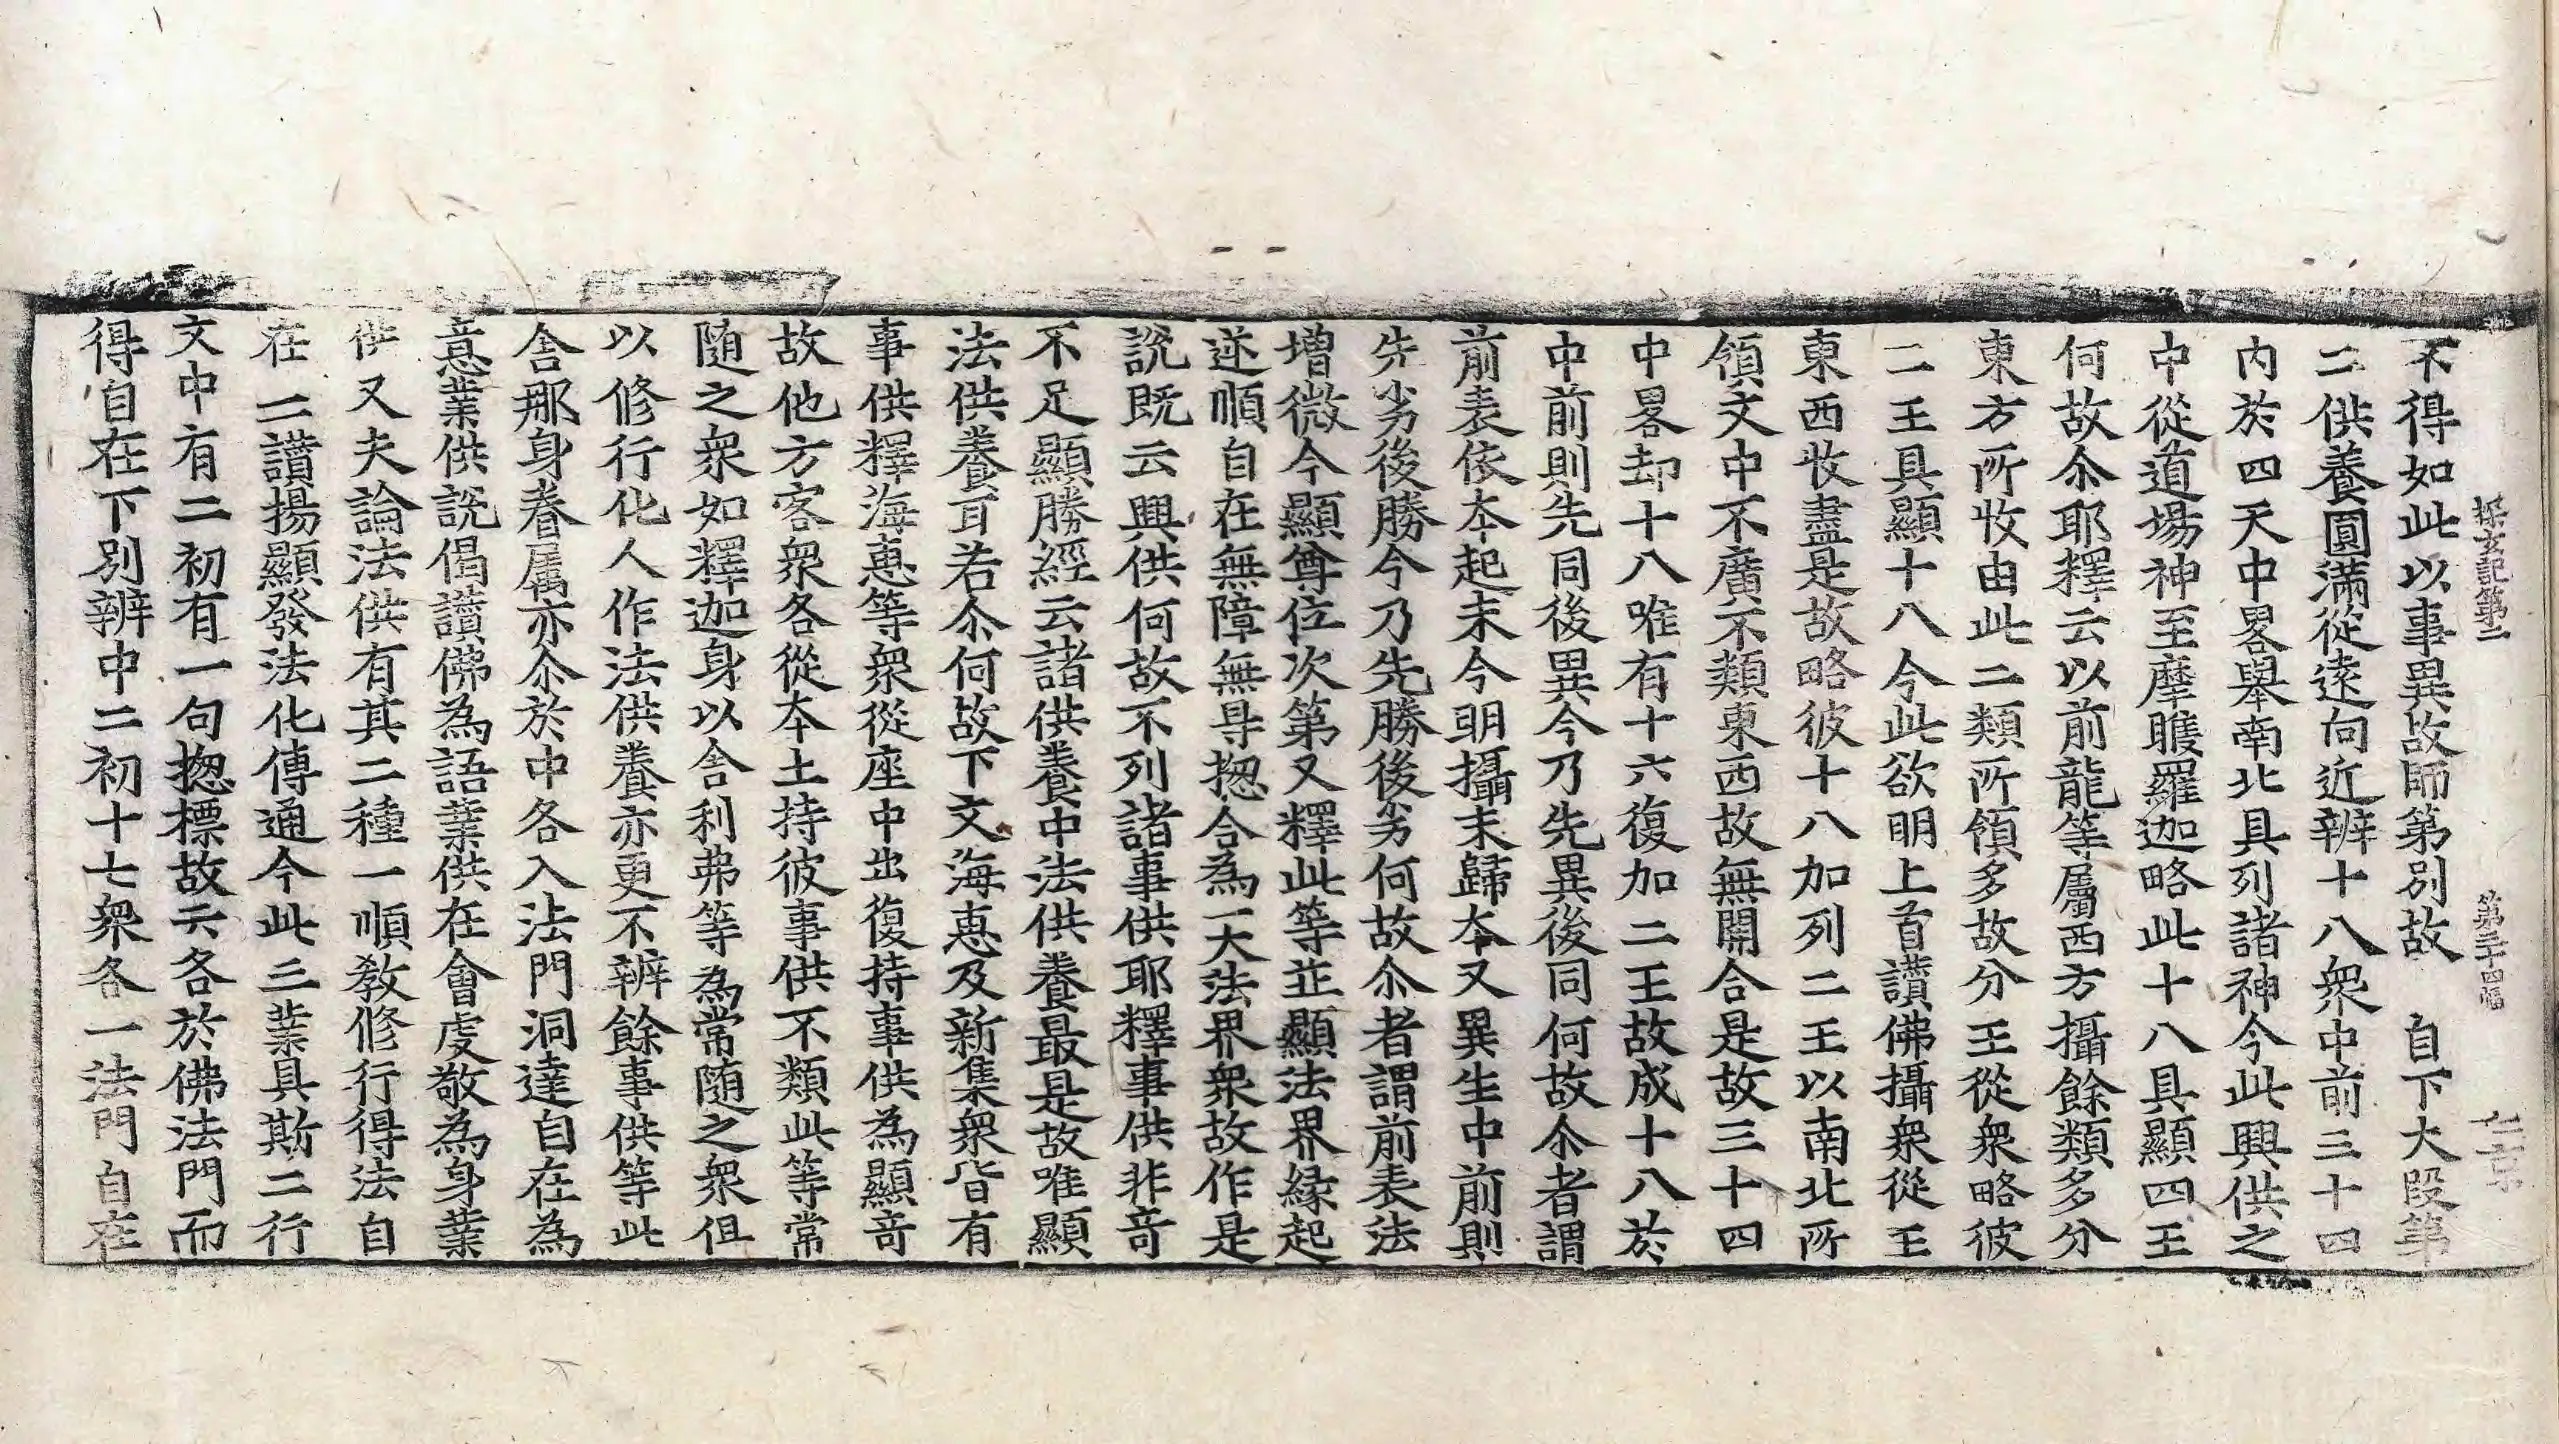 探玄記第二　第三十四幅　仁京
不得如此以事異故師第別故　自下大段第
二供養圓滿從遠向近辨十八衆中前三十四
內於四天中畧舉南北具列諸神今此興供之
中從道場神至摩睺羅迦略此十八具顯四王
何故尒耶釋云以前龍等屬西方攝餘類多分
東方所收由此二類所領多故分王從衆略彼
二王具顯十八今此欲明上首讚佛攝衆從王
東西收盡是故略彼十八加列二王以南北所
領文中不廣不類東西故無開合是故三十四
中畧却十八唯有十六復加二王故成十八於
中前則先同後異今乃先異後同何故尒者謂
前表依本起末今明攝末歸本又異生中前則
先劣後勝今乃先勝後劣何故尒者謂前表法
增微今顯尊位次第又釋此等並顯法界緣起
逆順自在無障無㝵揔合為一大法界衆故作是
說旣云興供何故不列諸事供耶釋事供非竒
不足顯勝經云諸供養中法供養最是故唯顯
法供養耳若尒何故下文海惠及新集衆皆有
事供釋海惠等衆從座中出復持事供為顯竒
故他方客衆各從本土持彼事供不類此等常
随之衆如釋迦身以舍利弗等為常随之衆但
以修行化人作法供養亦更不辨餘事供等此
舍那身眷属亦尒於中各入法門洞達自在為
意業供說偈讚佛為語業供在會虔敬為身業
供又夫論法供有其二種一順敎修行得法自
在二讚揚顯發法化傳通今此三業具斯二行
文中有二初有一句揔標故云各於佛法門而
得自在下別辨中二初十七衆各一法門自在